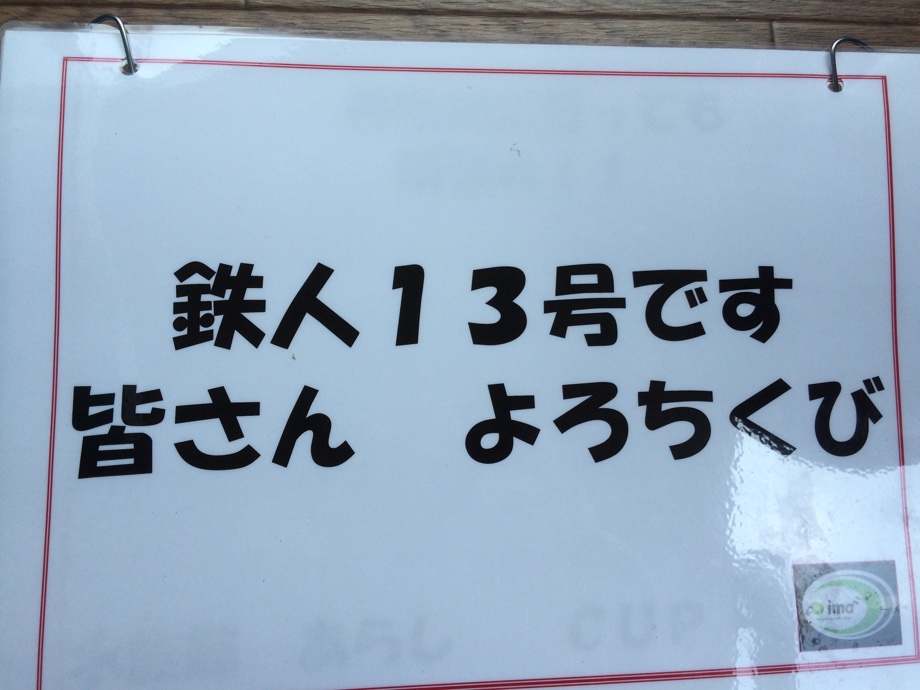 鉄人１３号です
皆さん　よろちくび
ima
CUP